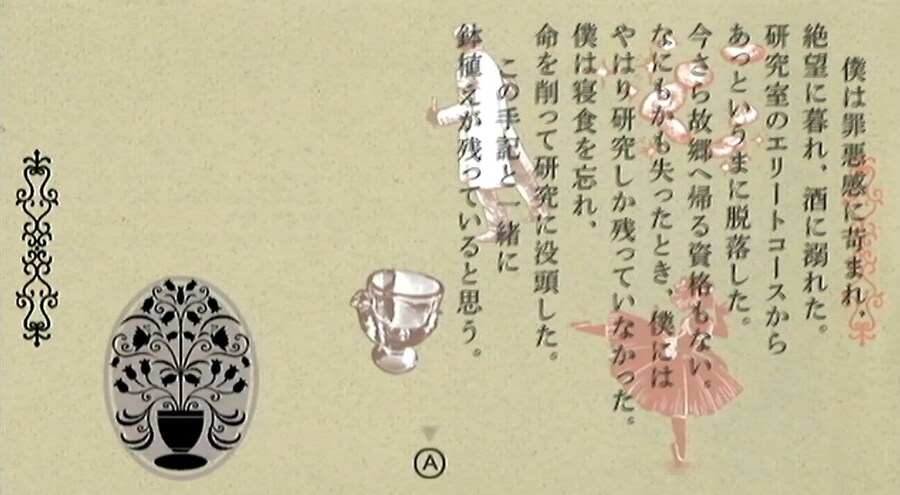 僕は罪悪感に苛まれ、
絶望に暮れ、酒に溺れた。
研究室のエリートコースから
あっというまに脱落した。
今さら故郷へ帰る資格もない。
なにもかも失ったとき、僕には
やはり研究しか残っていなかった。
僕は寝食を忘れ、
命を削って研究に没頭した。
この手記と一緒に
鉢植えが残っていると思う。
A